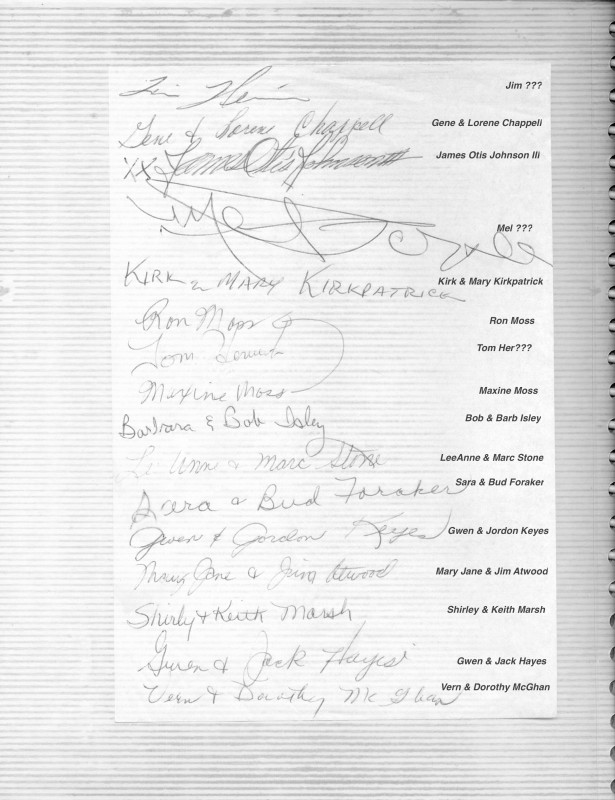 Jim ???
Gene & Lorene Chappell Gene & Lorene Chappell
XX James Otis Johnson III James Otis Johnson IIi
Mel Mel ???
KIRK & MARY KIRKPATRICK Kirk & Mary Kirkpatrick
Ron Moss Ron Moss
Tom Tom Her???
Maxine Moss Maxine Moss
Barbara & Bob Isley Bob & Barb Isley
Le Anne & Marc Stone LeeAnne & Marc Stone
Sara & Bud Foraker Sara & Bud Foraker
Gwen & Gordon Keyes Gwen & Jordon Keyes
Mary Jane & Jim Atwood Mary Jane & Jim Atwood
Shirly & Keith Marsh Shirley & Keith Marsh
Gwen & Jack Hayes Gwen & Jack Hayes
Vern & Dorothy McGhan Vern & Dorothy McGhan